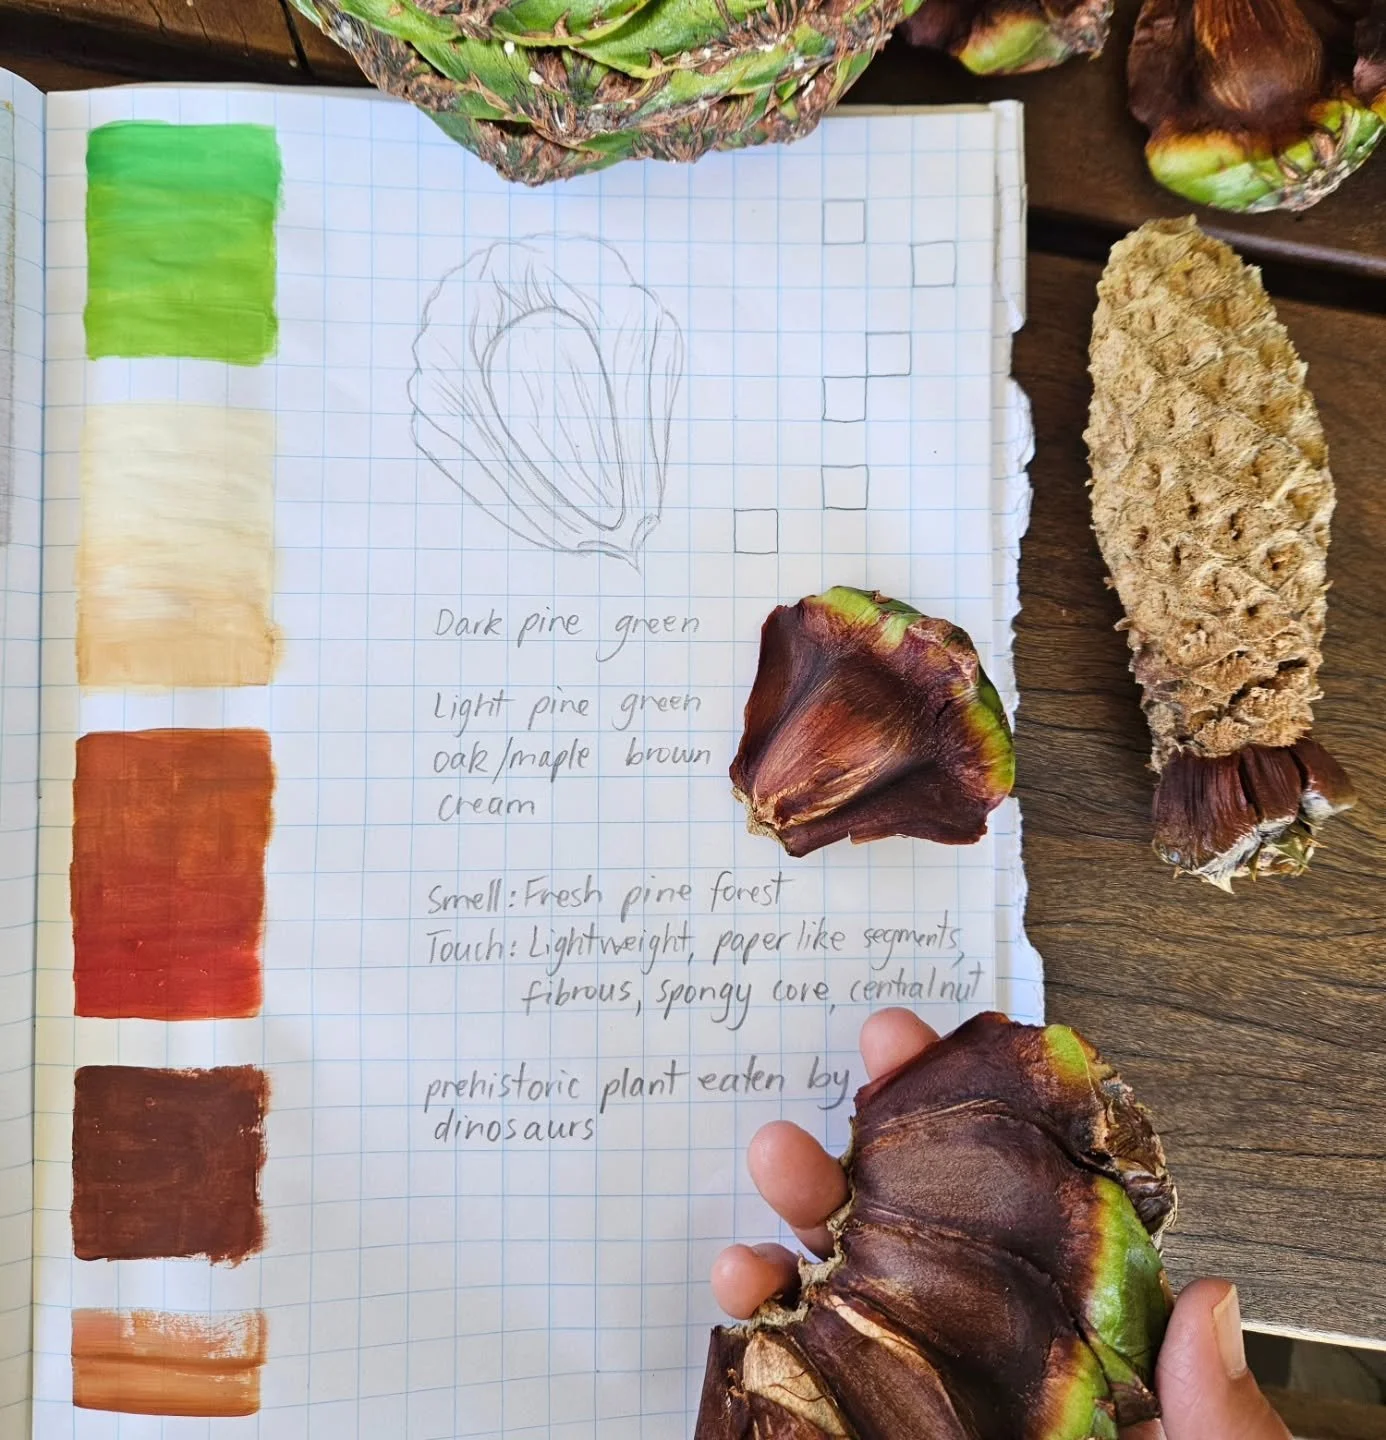 Dark pine green
Light pine green
oak/maple brown
cream
Smell: Fresh pine forest
Touch: Lightweight, paper like segments,
fibrous, spongy core, central nut
prehistoric plant eaten by
dinosaurs